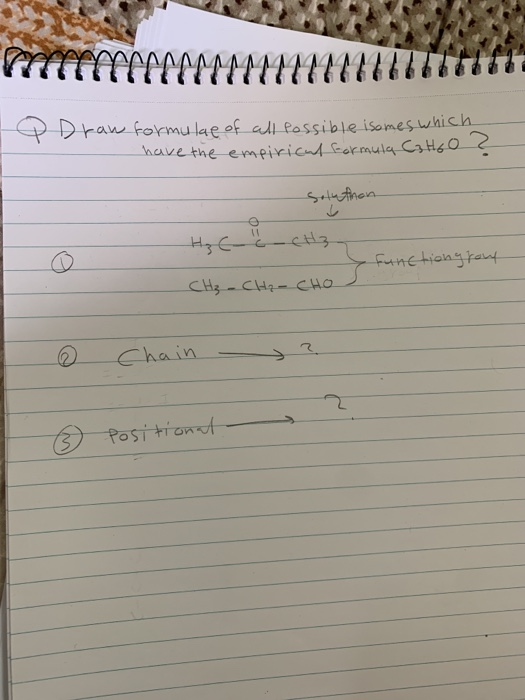 Q Draw formulae of all possible isomes which
have the empirical formula C3H6O ?
Soluthon
↓
O
||
① H3C-C-CH3
Function group
CH3-CH2-CHO
② Chain → ?
③ Positional → ?